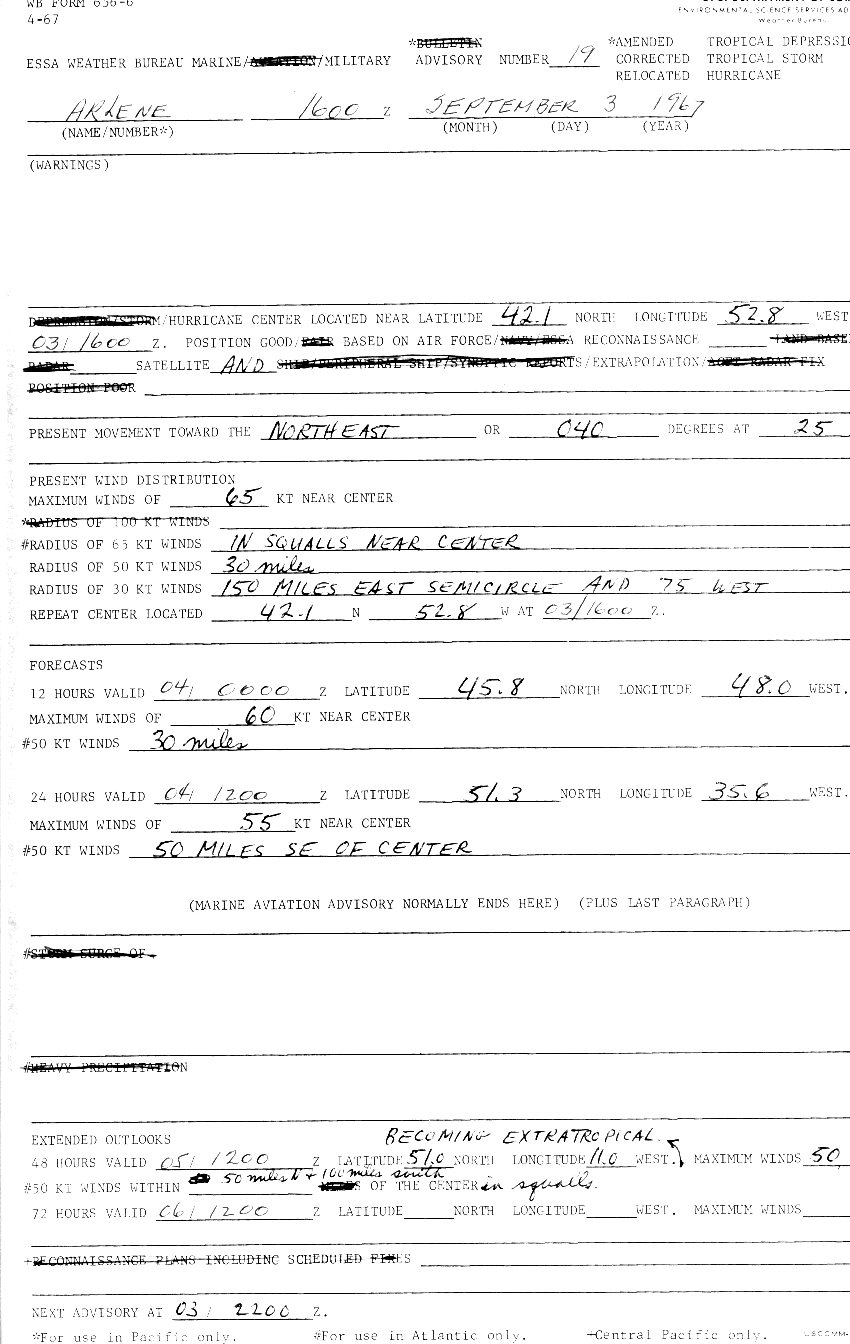 WB FORM 656-6
ENVIRONMENTAL SCIENCE SERVICES AD
4-67
Weather Bureau
*BULLETIN *AMENDED TROPICAL DEPRESSIO
ESSA WEATHER BUREAU MARINE/AVIATION/MILITARY ADVISORY NUMBER 19 CORRECTED TROPICAL STORM
RELOCATED HURRICANE
ARLENE 1600 Z SEPTEMBER 3 1967
(NAME/NUMBER*) (MONTH) (DAY) (YEAR)
(WARNINGS)
DEPRESSION/STORM/HURRICANE CENTER LOCATED NEAR LATITUDE 42.1 NORTH LONGITUDE 52.8 WEST
03/1600 Z. POSITION GOOD/FAIR BASED ON AIR FORCE/NAVY/ESSA RECONNAISSANCE LAND BASE
RADAR SATELLITE AND SHIP/PERIPHERAL SHIP/SYNOPTIC REPORTS/EXTRAPOLATION/ACFT RADAR FIX
POSITION POOR
PRESENT MOVEMENT TOWARD THE NORTHEAST OR 040 DEGREES AT 25
PRESENT WIND DISTRIBUTION
MAXIMUM WINDS OF 65 KT NEAR CENTER
*RADIUS OF 100 KT WINDS
#RADIUS OF 65 KT WINDS IN SQUALLS NEAR CENTER
RADIUS OF 50 KT WINDS 30 miles
RADIUS OF 30 KT WINDS 150 MILES EAST SEMICIRCLE AND 75 WEST
REPEAT CENTER LOCATED 42.1 N 52.8 W AT 03/1600 Z.
FORECASTS
12 HOURS VALID 04/ 0000 Z LATITUDE 45.8 NORTH LONGITUDE 48.0 WEST.
MAXIMUM WINDS OF 60 KT NEAR CENTER
#50 KT WINDS 30 miles
24 HOURS VALID 04/ 1200 Z LATITUDE 51.3 NORTH LONGITUDE 35.6 WEST.
MAXIMUM WINDS OF 55 KT NEAR CENTER
#50 KT WINDS 50 MILES SE OF CENTER
(MARINE AVIATION ADVISORY NORMALLY ENDS HERE) (PLUS LAST PARAGRAPH)
#STORM SURGE OF
#HEAVY PRECIPITATION
BECOMING EXTRATROPICAL.
EXTENDED OUTLOOKS
48 HOURS VALID 05/ 1200 Z LATITUDE 51.0 NORTH LONGITUDE 11.0 WEST. MAXIMUM WINDS 50
#50 KT WINDS WITHIN 50 miles N + 100 miles south MILES OF THE CENTER in squalls.
72 HOURS VALID 06/ 1200 Z LATITUDE NORTH LONGITUDE WEST. MAXIMUM WINDS
+RECONNAISSANCE PLANS INCLUDING SCHEDULED FIXES
NEXT ADVISORY AT 03/ 2200 Z.
*For use in Pacific only. #For use in Atlantic only. +Central Pacific only. USCOMM-